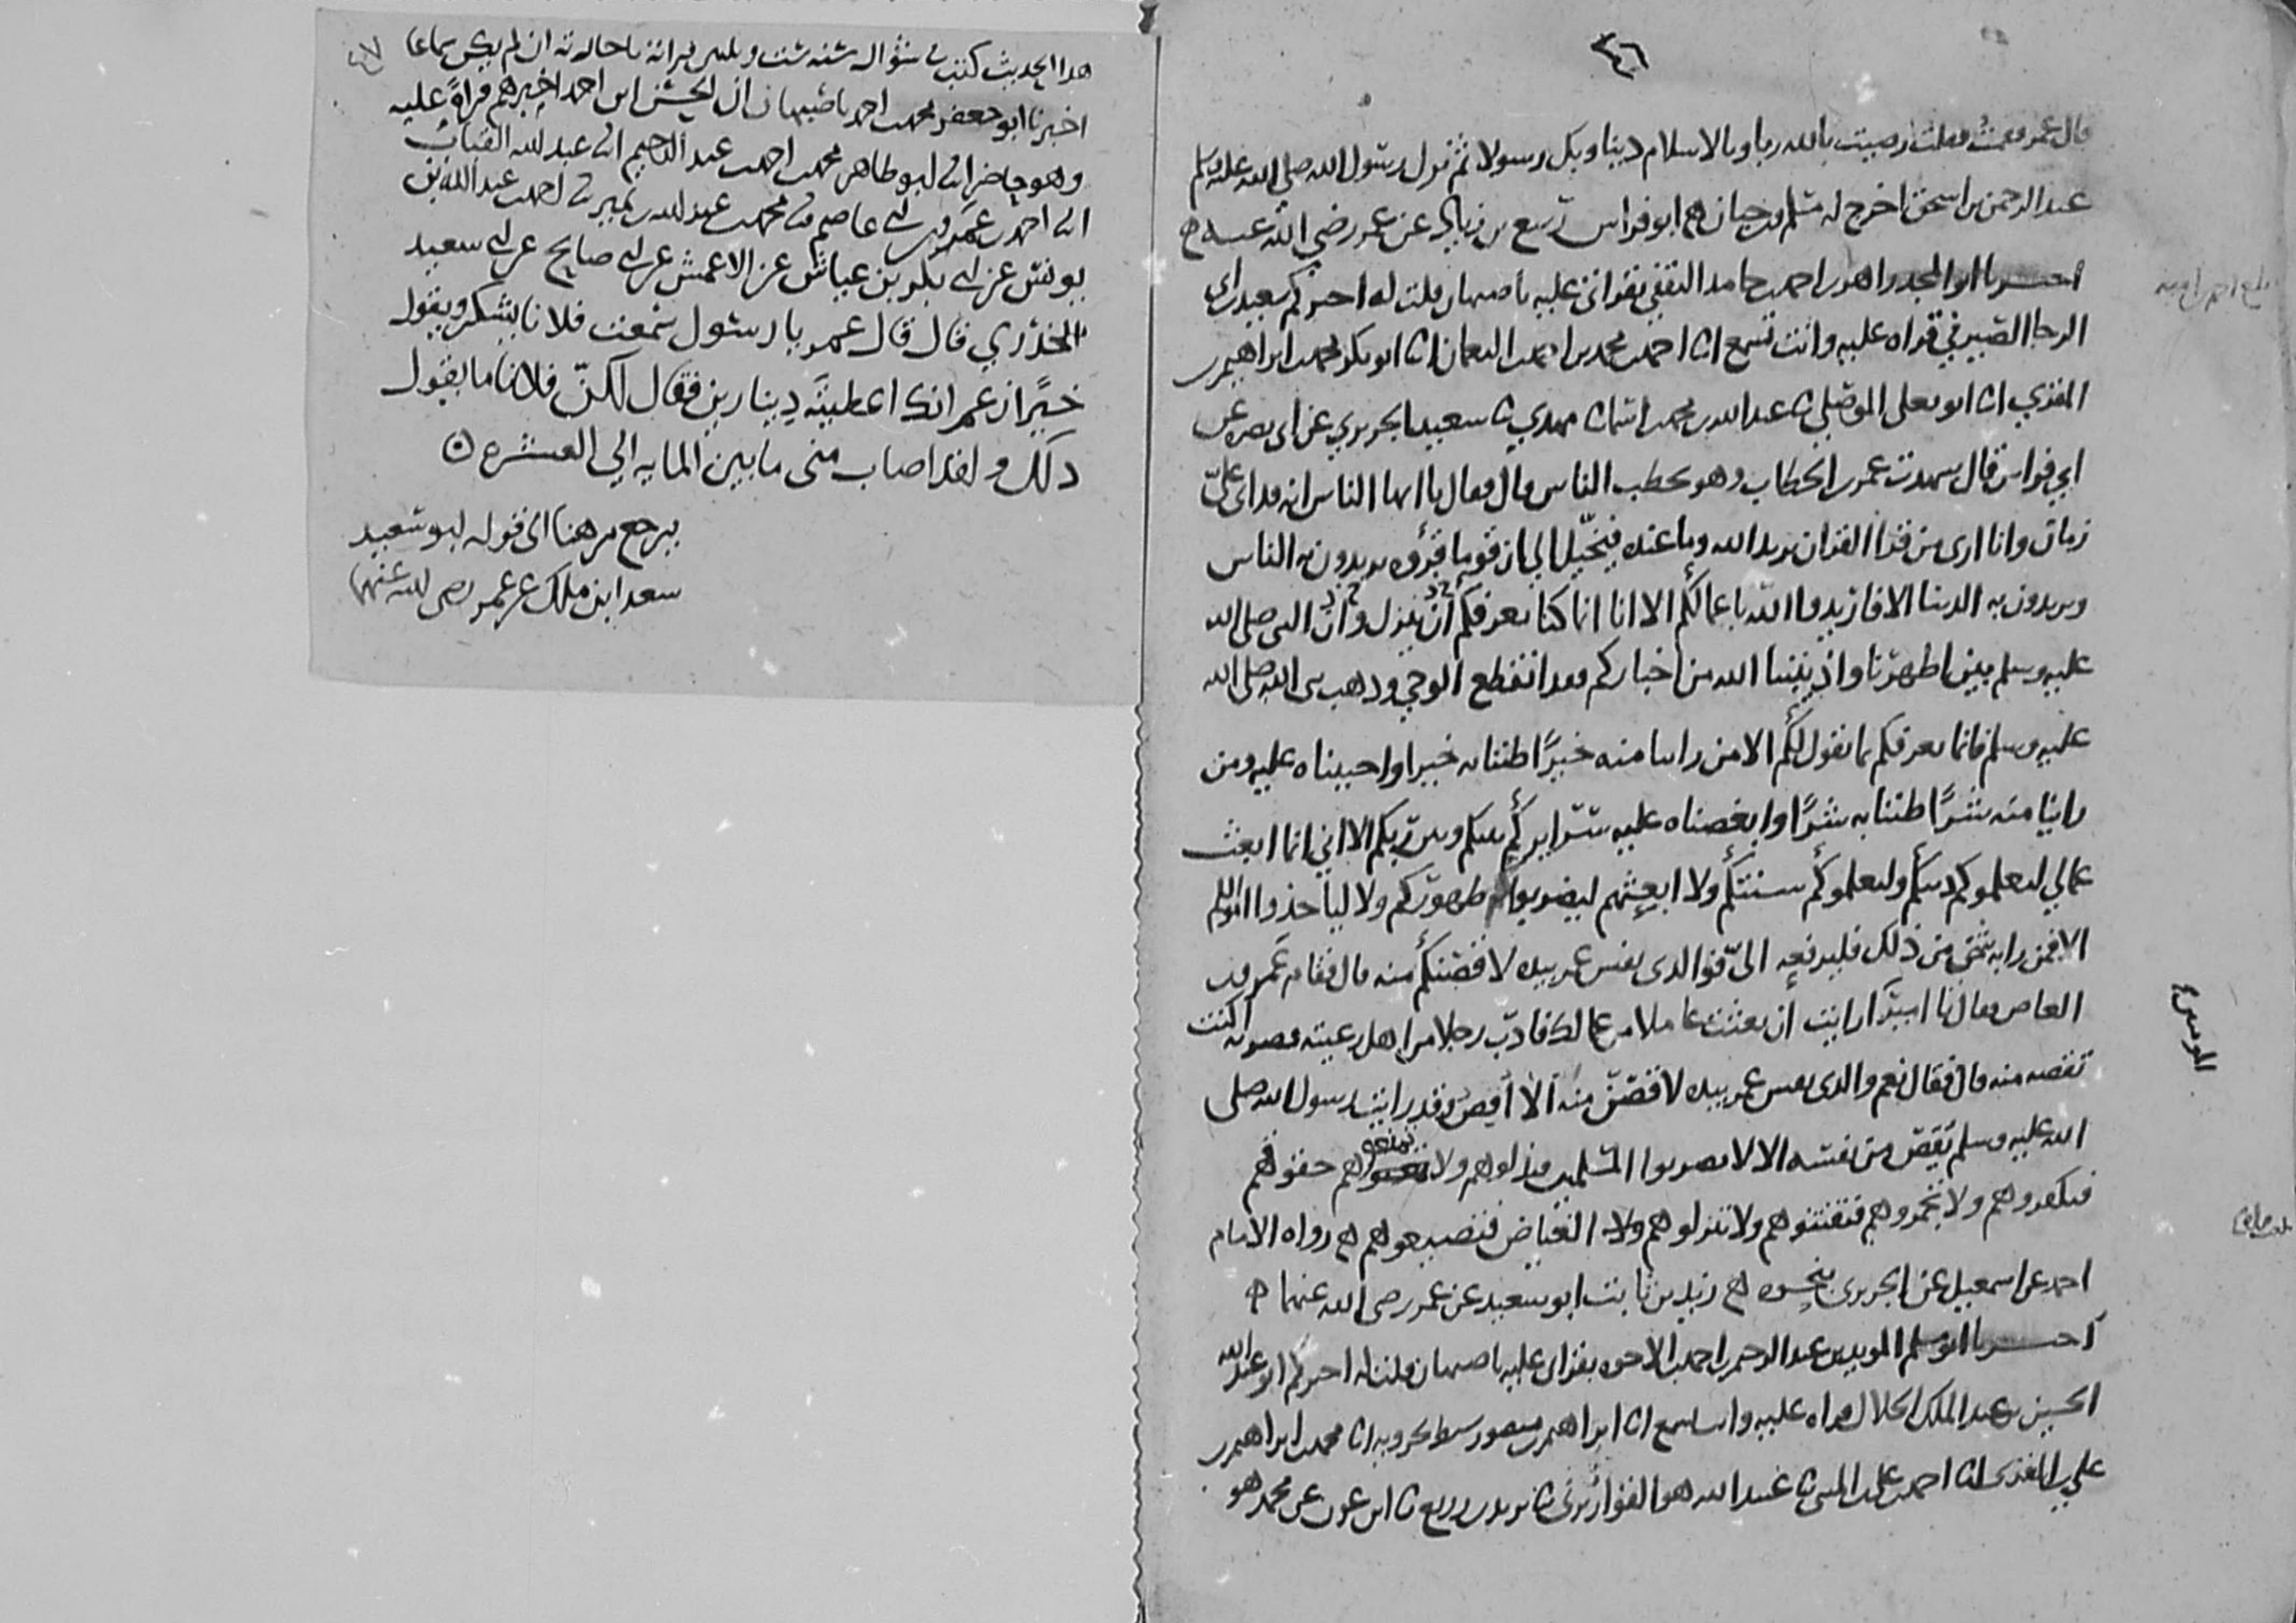 ٤٦
قال عمر فقمت فقلت رضيت بالله ربا وبالاسلام دينا وبك رسولا ثم نزل رسول الله صلى الله عليه وسلم
عبد الرحمن بن اسحق اخرج له مسلم وابن حبان ابو فراس ربيع بن زياد عن عمر رضي الله عنه
اخبرنا ابو المجد زاهر بن احمد بن حامد الثقفي بقراتي عليه باصبهان قلت له اخبركم سعيد بن ابي
الرجا الصيرفي قراه عليه وانت تسمع انا احمد بن محمد بن احمد بن النعمان انا ابو بكر محمد بن ابراهيم بن
المقري انا ابو يعلى الموصلي ثنا عبد الله بن محمد بن اسما ثنا مهدي ثنا سعيد الجريري عن ابي نضره عن
ابي فراس قال شهدت عمر بن الخطاب وهو يخطب الناس قال فقال يا ايها الناس انه قد اتى عليّ
زمان وانا ارى من قرا القران يريد الله وما عنده فيخيّل الي ان قوما قرؤه يريدون به الناس
ويريدون به الدنيا الا فاريدوا الله باعمالكم الا انا انما كنا نعرفكم اذ يتنزل واذ النبي صلى الله
عليه وسلم بين اظهرنا واذ ينبئنا الله من اخباركم فقد انقطع الوحي وذهب نبي الله صلى الله
عليه وسلم فانما نعرفكم بما نقول لكم الا من راينا منه خيرًا ظننا به خيرا واحببناه عليه ومن
راينا منه شرًا ظننا به شرًا وابغضناه عليه سرايركم بينكم وبين ربكم الا اني انما ابعث
عمالي ليعلموكم دينكم وليعلموكم سنتكم ولا ابعثهم ليضربوا ظهوركم ولا لياخذوا اموالكم
الا فمن رابه شي من ذلك فليرفعه اليّ فوالذي نفس عمر بيده لاقصنكم منه قال فقام عمرو بن
العاص فقال يا امير ارايت ان بعثت عاملا من عمالك فادب رجلا من اهل رعيته فضربه اكنت
المومنين
تقصه منه قال فقال نعم والذي نفس عمر بيده لاقصنّ منه الا اقص وقد رايت رسول الله صلى
الله عليه وسلم يقص من نفسه الا لا تضربوا المسلمين فتذلوهم ولا تمنعوهم حقوقهم
فتكفروهم ولا تجمروهم فتفتنوهم ولا تنزلوهم الغياض فتضيعوهم رواه الامام
احمد عن اسمعيل عن الجريري بنحوه زيد بن ثابت ابو سعيد عن عمر رضي الله عنهما
اخبرنا ابو مسلم المويد بن عبد الرحيم بن احمد بن الاخوه بقراتي عليه باصبهان قلت له اخبركم ابو عبد الله
الحسين بن عبد الملك الخلال قراه عليه وانت تسمع انا ابراهيم بن منصور سبط بحرويه انا محمد بن ابراهيم بن
علي بن المقري انا احمد بن علي بن المثنى ثنا عبيد الله هو القواريري ثنا يزيد بن زريع ثنا ابن عون عن محمد هو
٤٧
هذا الحديث كتب في شوال سنه ست
اخبرنا ابو جعفر محمد بن احمد باصبهان ان الحسن بن احمد اخبرهم قراةً عليه
وهو حاضر انا ابو طاهر محمد بن احمد بن عبد الرحيم انا عبد الله القباب
انا احمد بن عمرو بن ابي عاصم ثنا محمد بن عبد الله بن نمير ثنا احمد بن عبد الله بن
يونس عن ابي بكر بن عياش عن الاعمش عن ابي صالح عن ابي سعيد
الخدري قال قال عمر يا رسول سمعت فلانا يشكر ويقول
خيرًا زعم انك اعطيته دينارين فقال لكنّ فلانا ما يقول
ذلك ولقد اصاب مني ما بين المايه الى العشره
يرجع من هنا الى قوله ابو سعيد
سعد ابن ملك عن عمر رضي الله عنهما